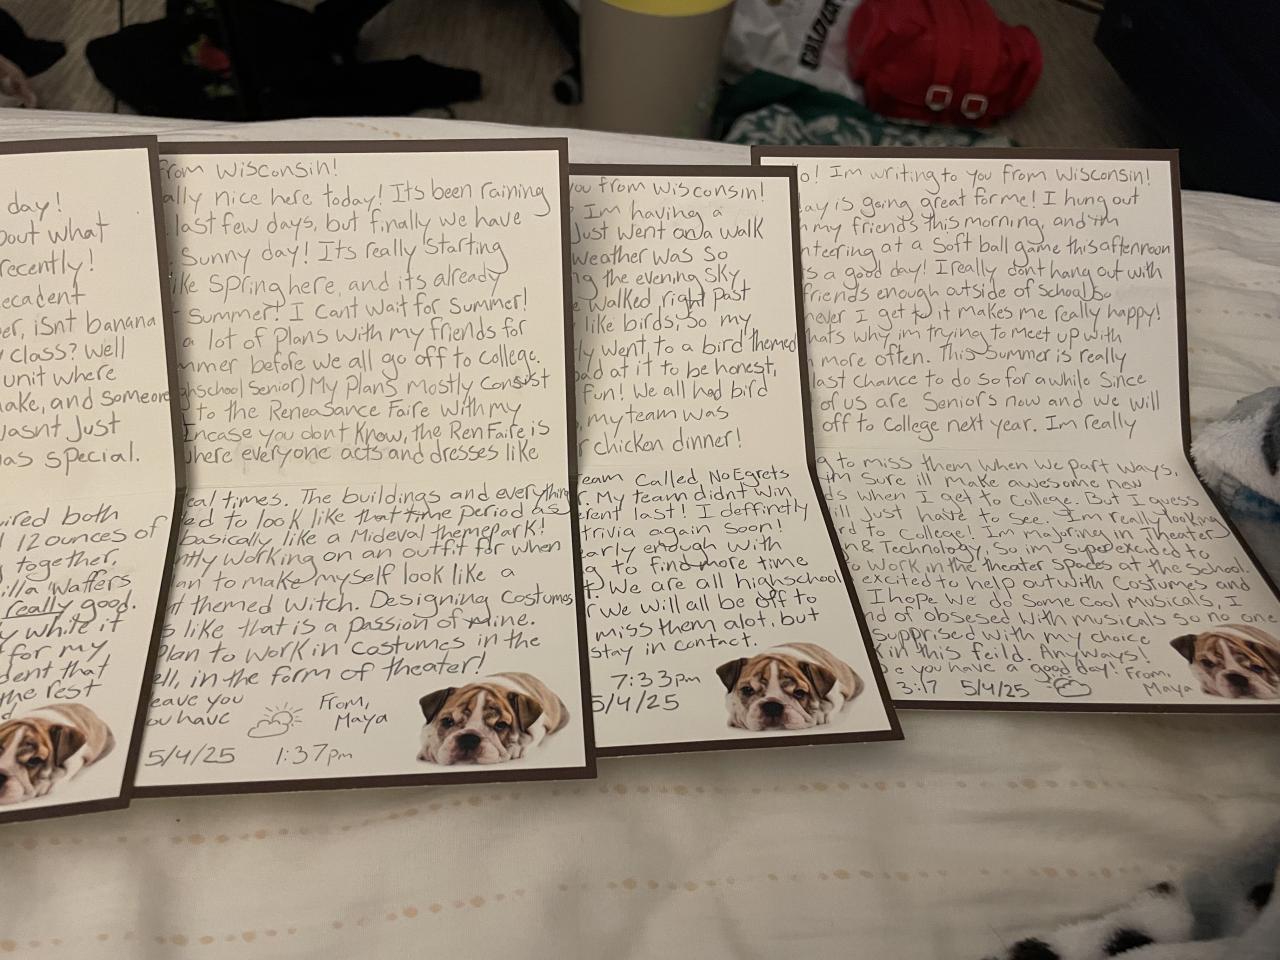 day!
bout what
recently!
ecadent
er, isnt banana
class? Well
unit where
ake, and someone
wasnt Just
as special.
ired both
12 ounces of
together.
illa Waffers
really good.
y while it
for my
dent that
the rest
from Wisconsin!
ally nice here today! Its been raining
last few days, but finally we have
Sunny day! Its really Starting
like Spring here, and its already
Summer! I Cant wait for Summer!
a lot of Plans with my friends for
mmer before we all go off to college.
ghschool Senior) My Plans mostly Consist
to the Reneasance Faire with my
Incase you dont Know, the Ren Faire is
where everyone acts and dresses like
eal times. The buildings and everything
ed to look like that time period as
basically like a Mideval themepark!
ntly working on an outfit for when
an to make myself look like a
themed witch. Designing Costumes
s like that is a passion of mine.
Plan to work in Costumes in the
ell, in the form of theater!
eave you
ou have
From,
Maya
5/4/25 1:37pm
you from Wisconsin!
Im having a
Just went on a walk
weather was so
ng the evening Sky
e walked right past
like birds, So my
ly went to a bird themed
bad at it to be honest,
fun! We all had bird
, my team was
r chicken dinner!
eam Called, No Egrets
. My team didnt win
erent last! I deffinctly
trivia again Soon!
early enough with
g to find more time
. We are all highschool
r we will all be off to
miss them alot, but
stay in contact.
7:33pm
5/4/25
o! Im writing to you from Wisconsin!
ay is going great for me! I hung out
my friends this morning, and im
nteering at a Soft ball game this afternoon
s a good day! I really dont hang out with
friends enough outside of school, so
never I get to it makes me really happy!
hats why im trying to meet up with
more often. This Summer is really
last chance to do so for awhile Since
of us are Seniors now and we will
off to College next year. Im really
g to miss them when we part ways,
im Sure ill make awesome new
ds when I get to College. But I guess
ill Just have to See. Im really looking
rd to College! Im majoring in Theater
n & Technology, So im super excited to
o work in the theater spaces at the School.
excited to help out with Costumes and
I hope we do Some Cool musicals, I
nd of obsesed with musicals so no one
Supprised with my choice
k in this feild. Anyways!
e you have a good day! From,
Maya
3:17 5/4/25